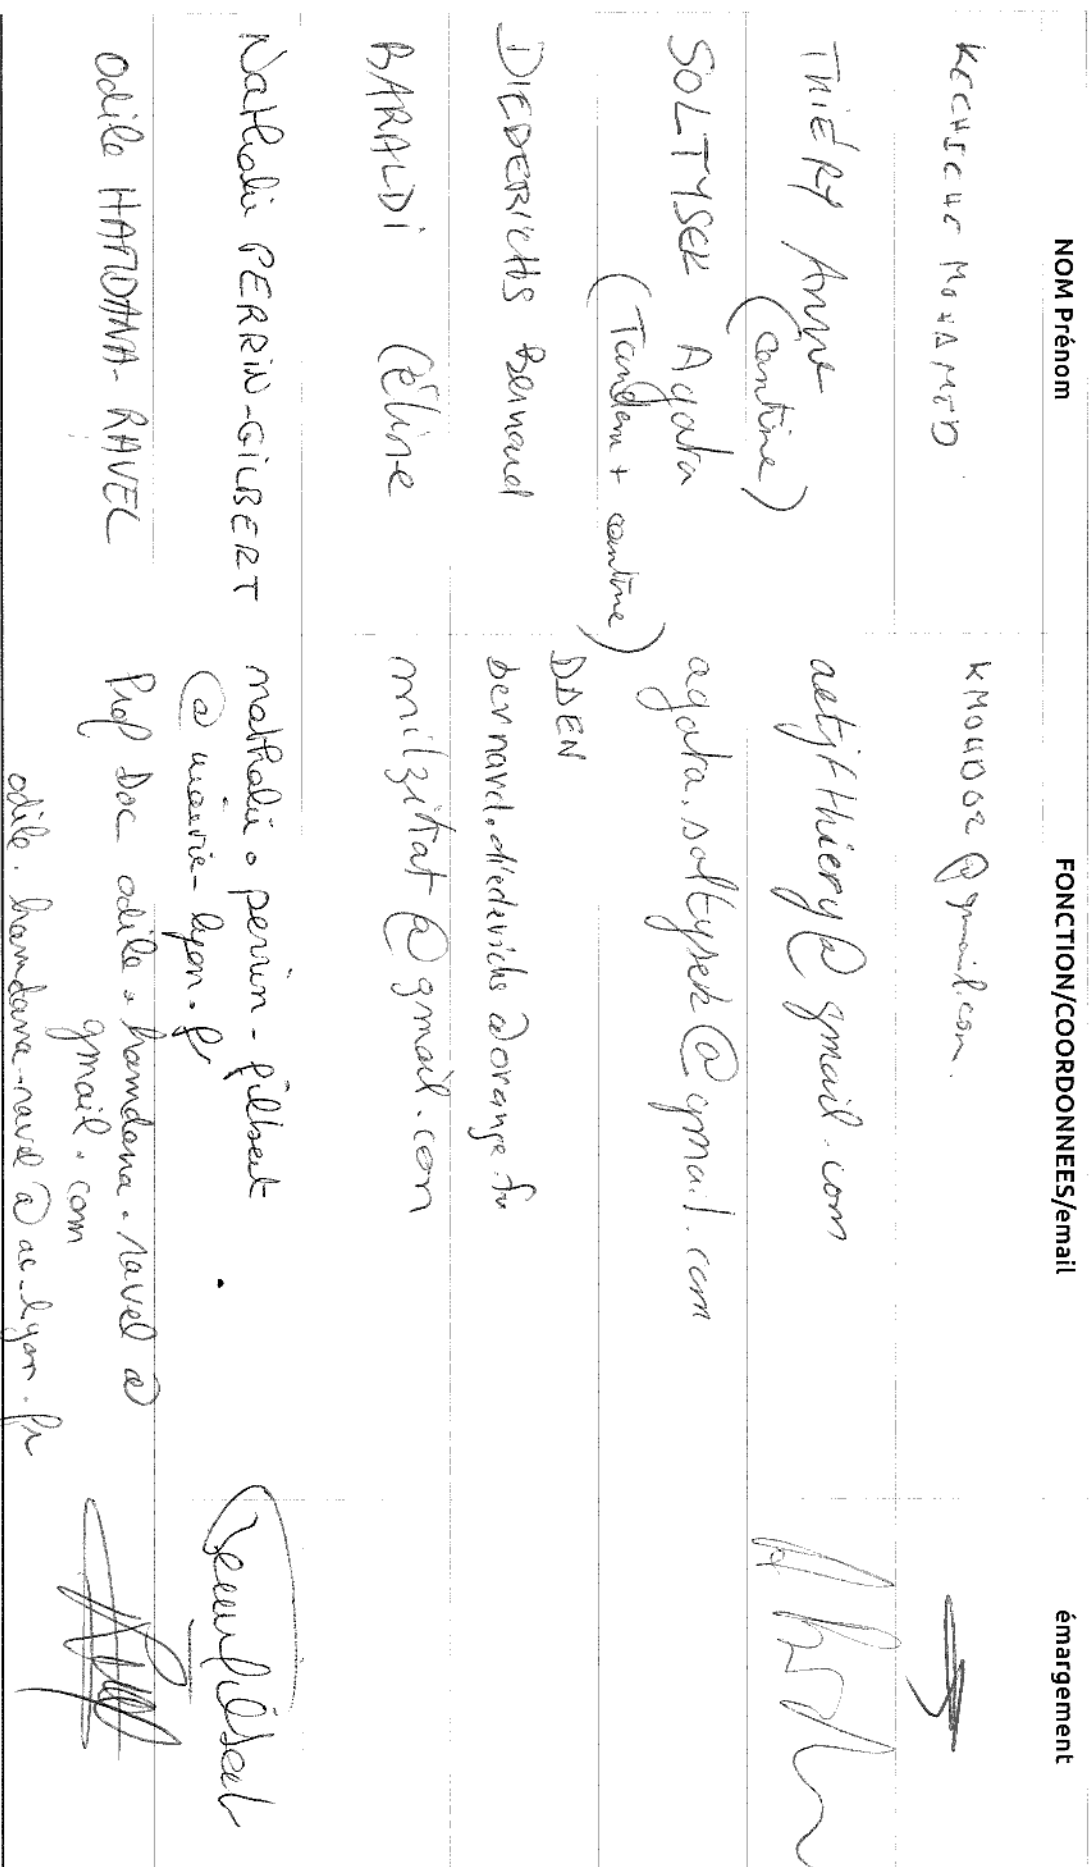 NOM Prénom FONCTION/COORDONNEES/email émargement
KECHICHE MOHAMED KMOUD692@gmail.com.
THIERY Anne aetjfthiery@gmail.com
(cantine)
SOLTYSEK Agata agata.soltysek@gmail.com
(Tandem + cantine)
DDEN
DIEDERICHS Bernard bernard.diederichs@orange.fr
BARALDI Céline milzitat@gmail.com
Nathalie PERRIN-GILBERT nathalie.perrin-gilbert
@mairie-lyon.fr
Odile HAMDANA-RAVEL Prof Doc odile.hamdana.ravel@
gmail.com
odile.hamdana-ravel@ac-lyon.fr